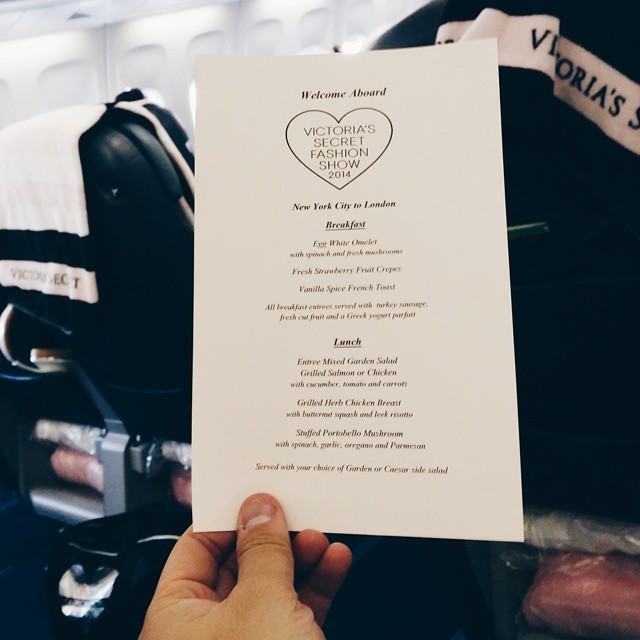 Welcome Aboard
VICTORIA'S
SECRET
FASHION
SHOW
2014
New York City to London
Breakfast
Egg White Omelet
with spinach and fresh mushrooms
Fresh Strawberry Fruit Crepes
Vanilla Spice French Toast
All breakfast entrees served with turkey sausage,
fresh cut fruit and a Greek yogurt parfait
Lunch
Entree Mixed Garden Salad
Grilled Salmon or Chicken
with cucumber, tomato and carrots
Grilled Herb Chicken Breast
with butternut squash and leek risotto
Stuffed Portobello Mushroom
with spinach, garlic, oregano and Parmesan
Served with your choice of Garden or Caesar side salad
VICTORIA'S S